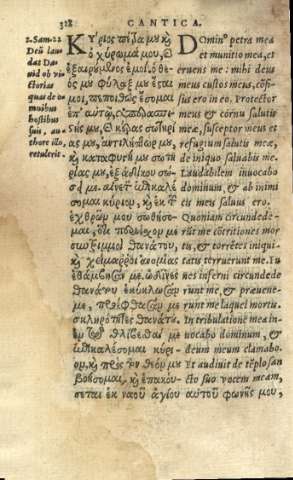 328 CANTICA.
2. Sam. 22
Deũ lau
dat Da-
uid ob vi-
ctorias
quas de o-
mnibus
hostibus
suis, au-
thore illo,
retulerit.
Κύριος πέτρα μου καὶ
ὀχύρωμά μου, καὶ
ἐξαιρούμενός με· ἐμοὶ ὁ θε-
ός μου φύλαξ μου ἔσται
μοι, πεποιθὼς ἔσομαι
ἐπ' αὐτῷ, ὑπερασπι-
στής μου, καὶ κέρας σωτηρί-
ας μου, ἀντιλήπτωρ μου,
καὶ καταφυγή μου σωτη-
ρίας μου, ἐξ ἀδίκου σώ-
σεις με. αἰνετὸν ἐπικαλέ-
σομαι κύριον, καὶ ἐκ τῶν
ἐχθρῶν μου σωθήσο-
μαι, ὅτι περιέσχον με
συντριμμοὶ θανάτου,
χείμαρροι ἀνομίας
ἐθάμβησάν με, ὠδῖνες
θανάτου ἐκύκλωσάν
με, προέφθασάν με
σκληρότητες θανάτου. ἐν
τῷ θλίβεσθαί με
ἐπικαλέσομαι κύρι-
ον, καὶ πρὸς τὸν θεόν μου
βοήσομαι, καὶ ἐπακού-
σεται ἐκ ναοῦ ἁγίου αὐτοῦ φωνῆς μου,
DOmin⁹ petra mea
et munitio mea, et
eruens me: mihi deus
meus custos meus, cõfi-
sus ero in eo. Protector
meus & cornu salutis
meæ, susceptor meus et
refugium salutis meæ,
de iniquo saluabis me.
Laudabilem inuocabo
dominum, & ab inimi
cis meis saluus ero.
Quoniam circundede-
rũt me cõtritiones mor
tis, & torrẽtes iniqui-
tatis terruerunt me. Fu
nes inferni circundede
runt me, & præuene-
runt me laquei mortis.
In tribulatiõne mea in-
uocabo dominum, &
ad deum meum clamabo.
Et audiuit de tẽplo san
cto suo vocem meam,